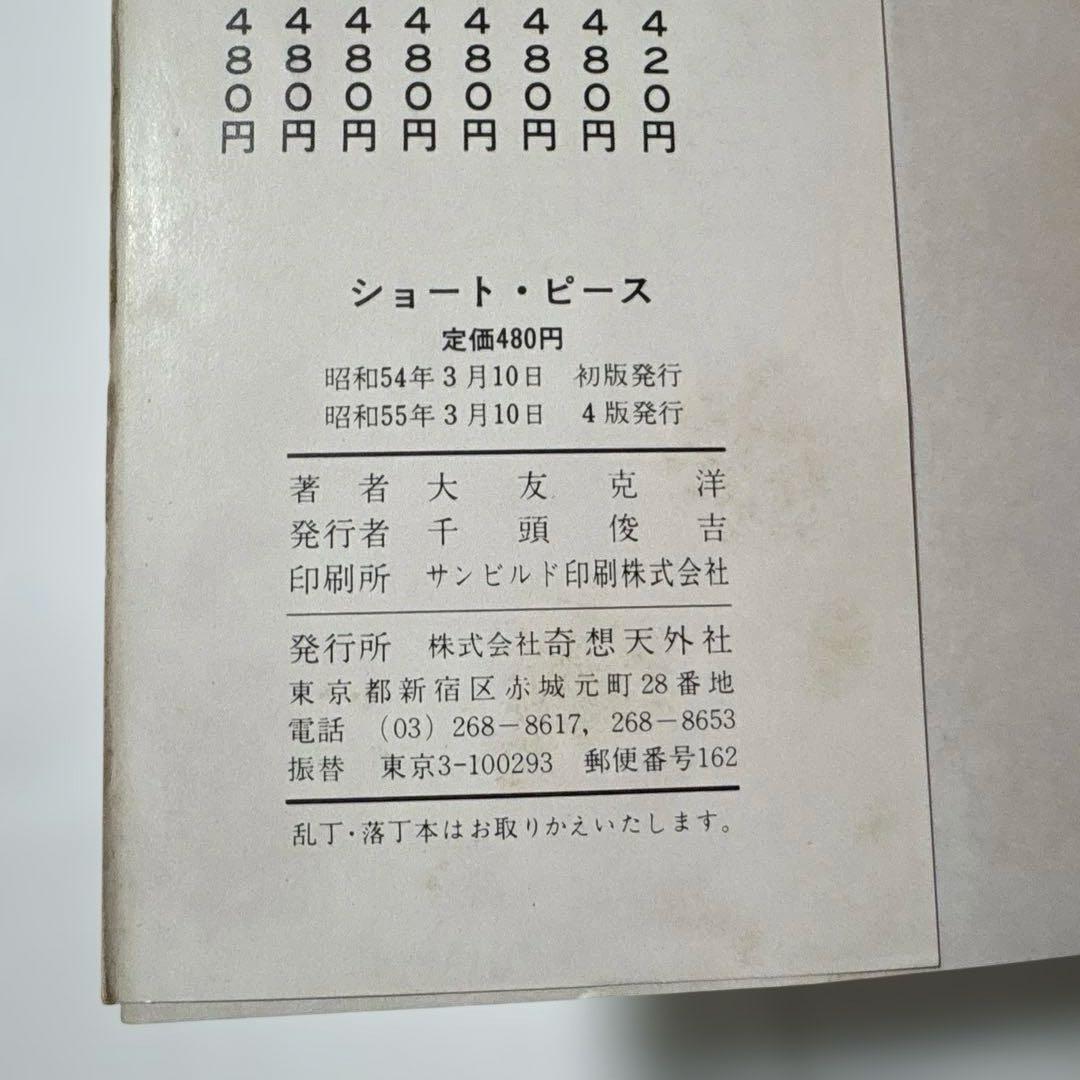 420円
480円
480円
480円
480円
480円
480円
480円
ショート・ピース
定価480円
昭和54年3月10日　初版発行
昭和55年3月10日　4版発行
著者　大友克洋
発行者　千頭俊吉
印刷所　サンビルド印刷株式会社
発行所　株式会社奇想天外社
東京都新宿区赤城元町28番地
電話　(03) 268－8617, 268－8653
振替　東京3-100293　郵便番号162
乱丁・落丁本はお取りかえいたします。